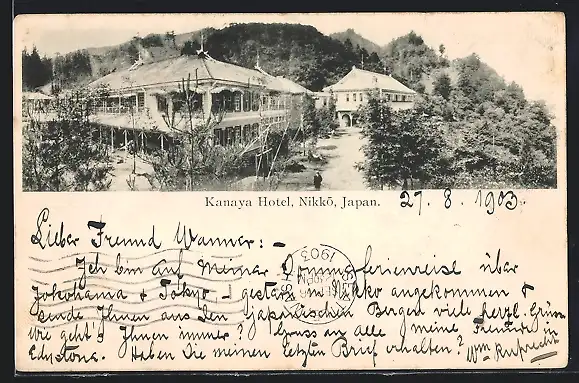 Kanaya Hotel, Nikkō, Japan.
27. 8. 1903
Lieber Freund Wanner: -
Ich bin auf Meiner Sommerferienreise über
Yokohama & Tokyo - gestern in Nikko angekommen &
sende Ihnen aus den Japanischen Bergen viele herzl. Grüsse
Wie geht's Ihnen immer? Gruss an alle meine Freunde in
Edystona. Haben Sie meinen letzten Brief erhalten? Wm Ruprecht
1903